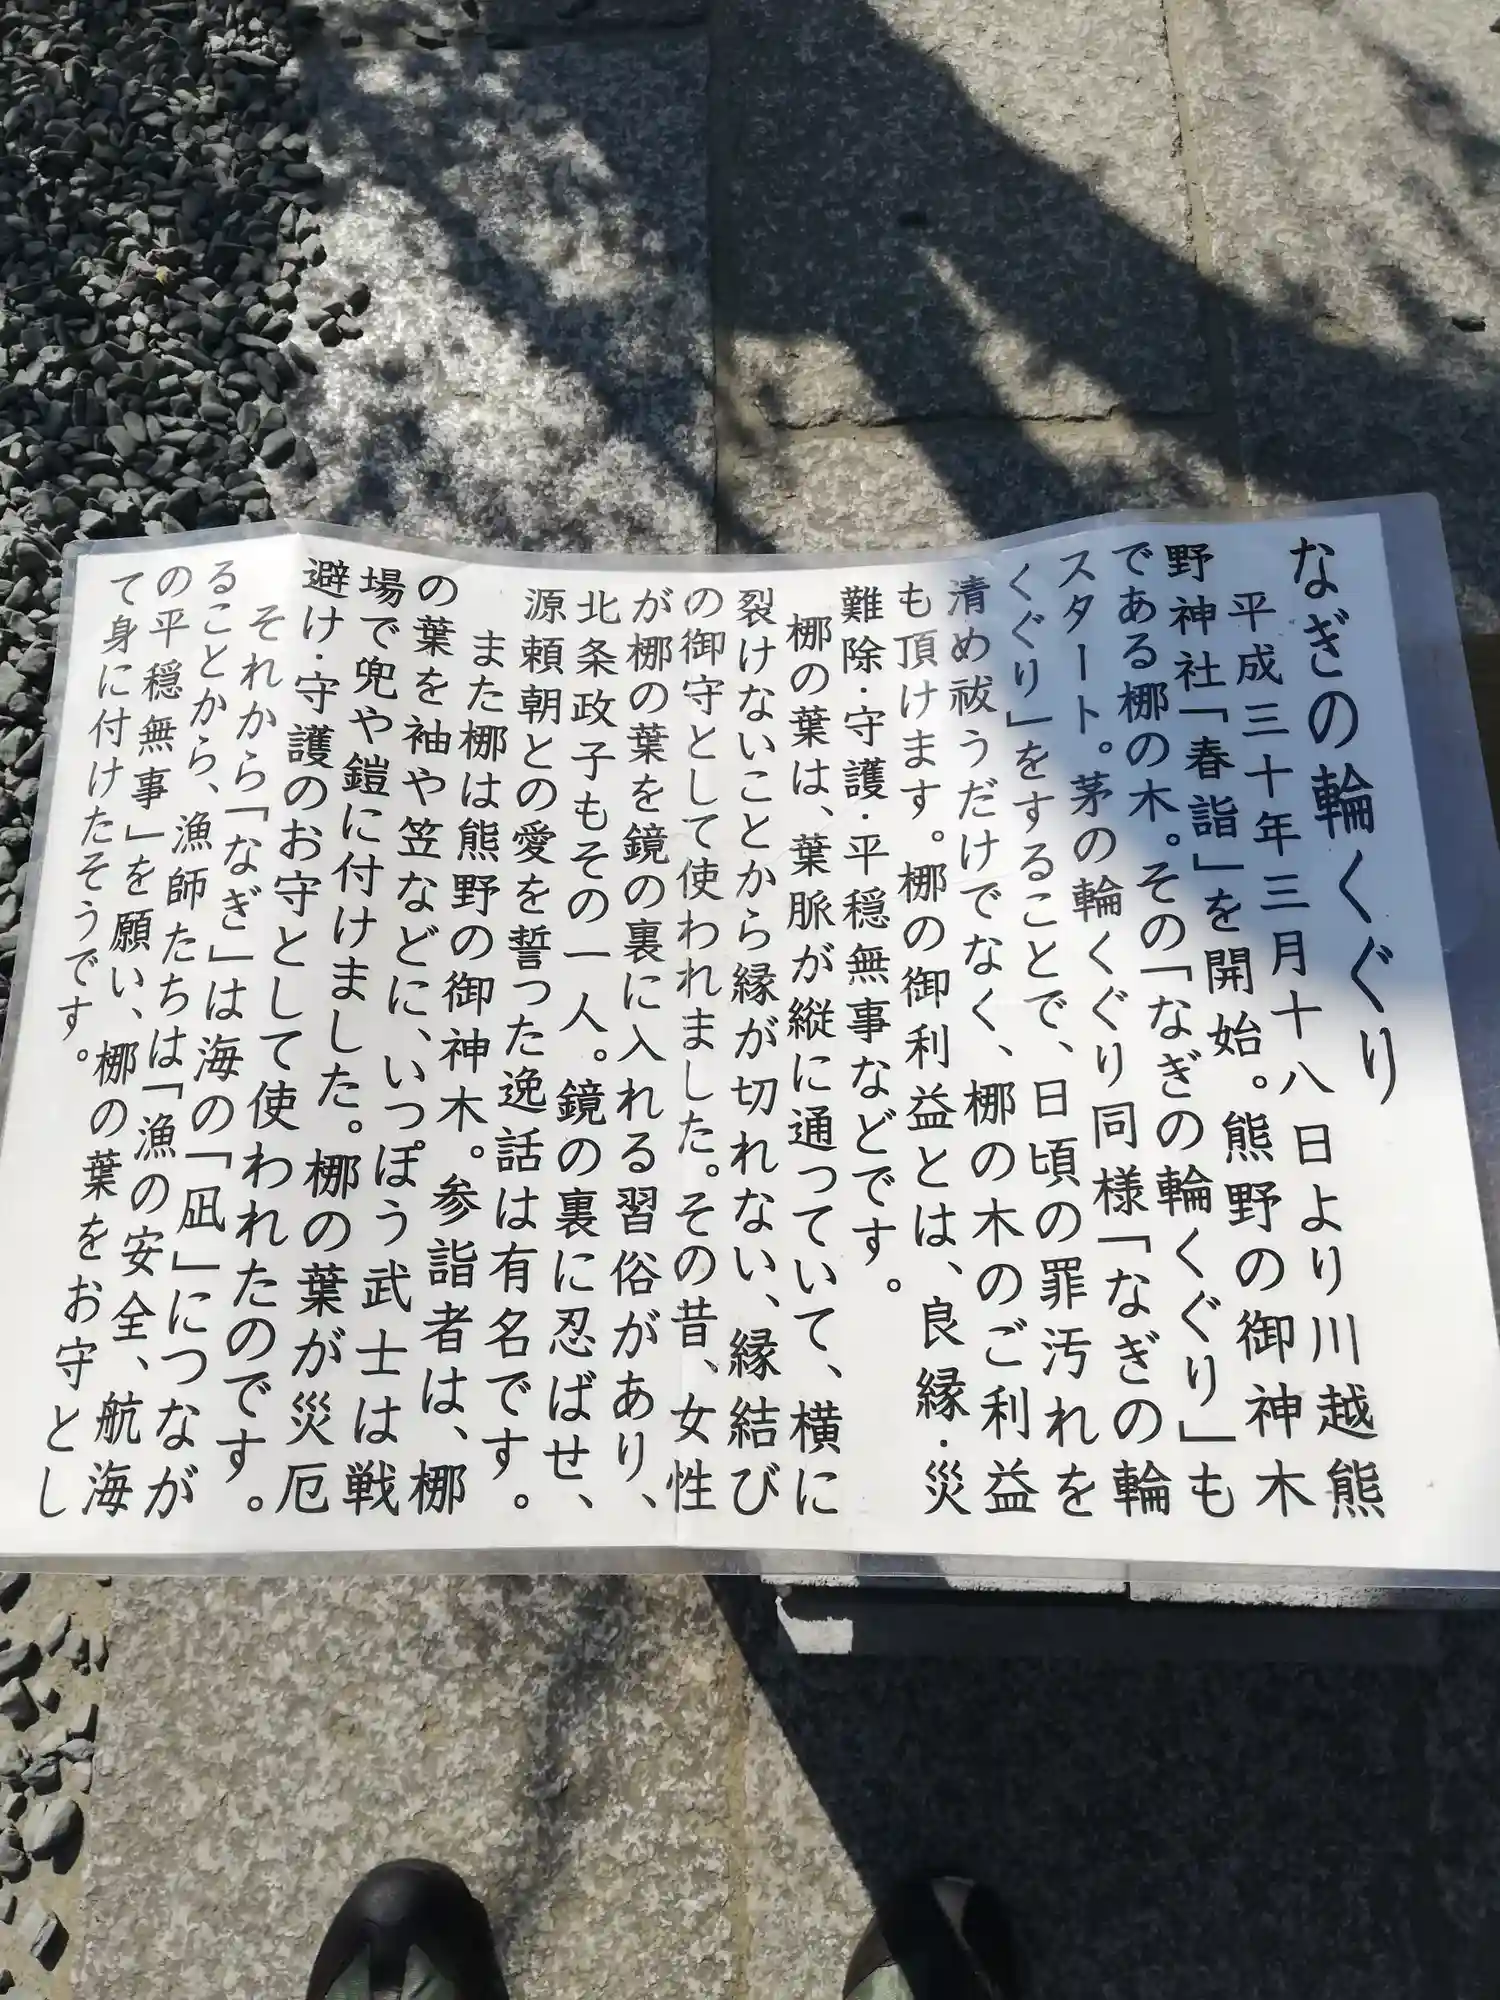 なぎの輪くぐり
平成三十年三月十八日より川越熊
野神社「春詣」を開始。熊野の御神木
である梛の木。その「なぎの輪くぐり」も
スタート。茅の輪くぐり同様「なぎの輪
くぐり」をすることで、日頃の罪汚れを
清め祓うだけでなく、梛の木のご利益
も頂けます。梛の御利益とは、良縁・災
難除・守護・平穏無事などです。
梛の葉は、葉脈が縦に通っていて、横に
裂けないことから縁が切れない、縁結び
の御守として使われました。その昔、女性
が梛の葉を鏡の裏に入れる習俗があり、
北条政子もその一人。鏡の裏に忍ばせ、
源頼朝との愛を誓った逸話は有名です。
また梛は熊野の御神木。参詣者は、梛
の葉を袖や笠などに、いっぽう武士は戦
場で兜や鎧に付けました。梛の葉が災厄
避け・守護のお守として使われたのです。
それから「なぎ」は海の「凪」につなが
ることから、漁師たちは「漁の安全、航海
の平穏無事」を願い、梛の葉をお守とし
て身に付けたそうです。